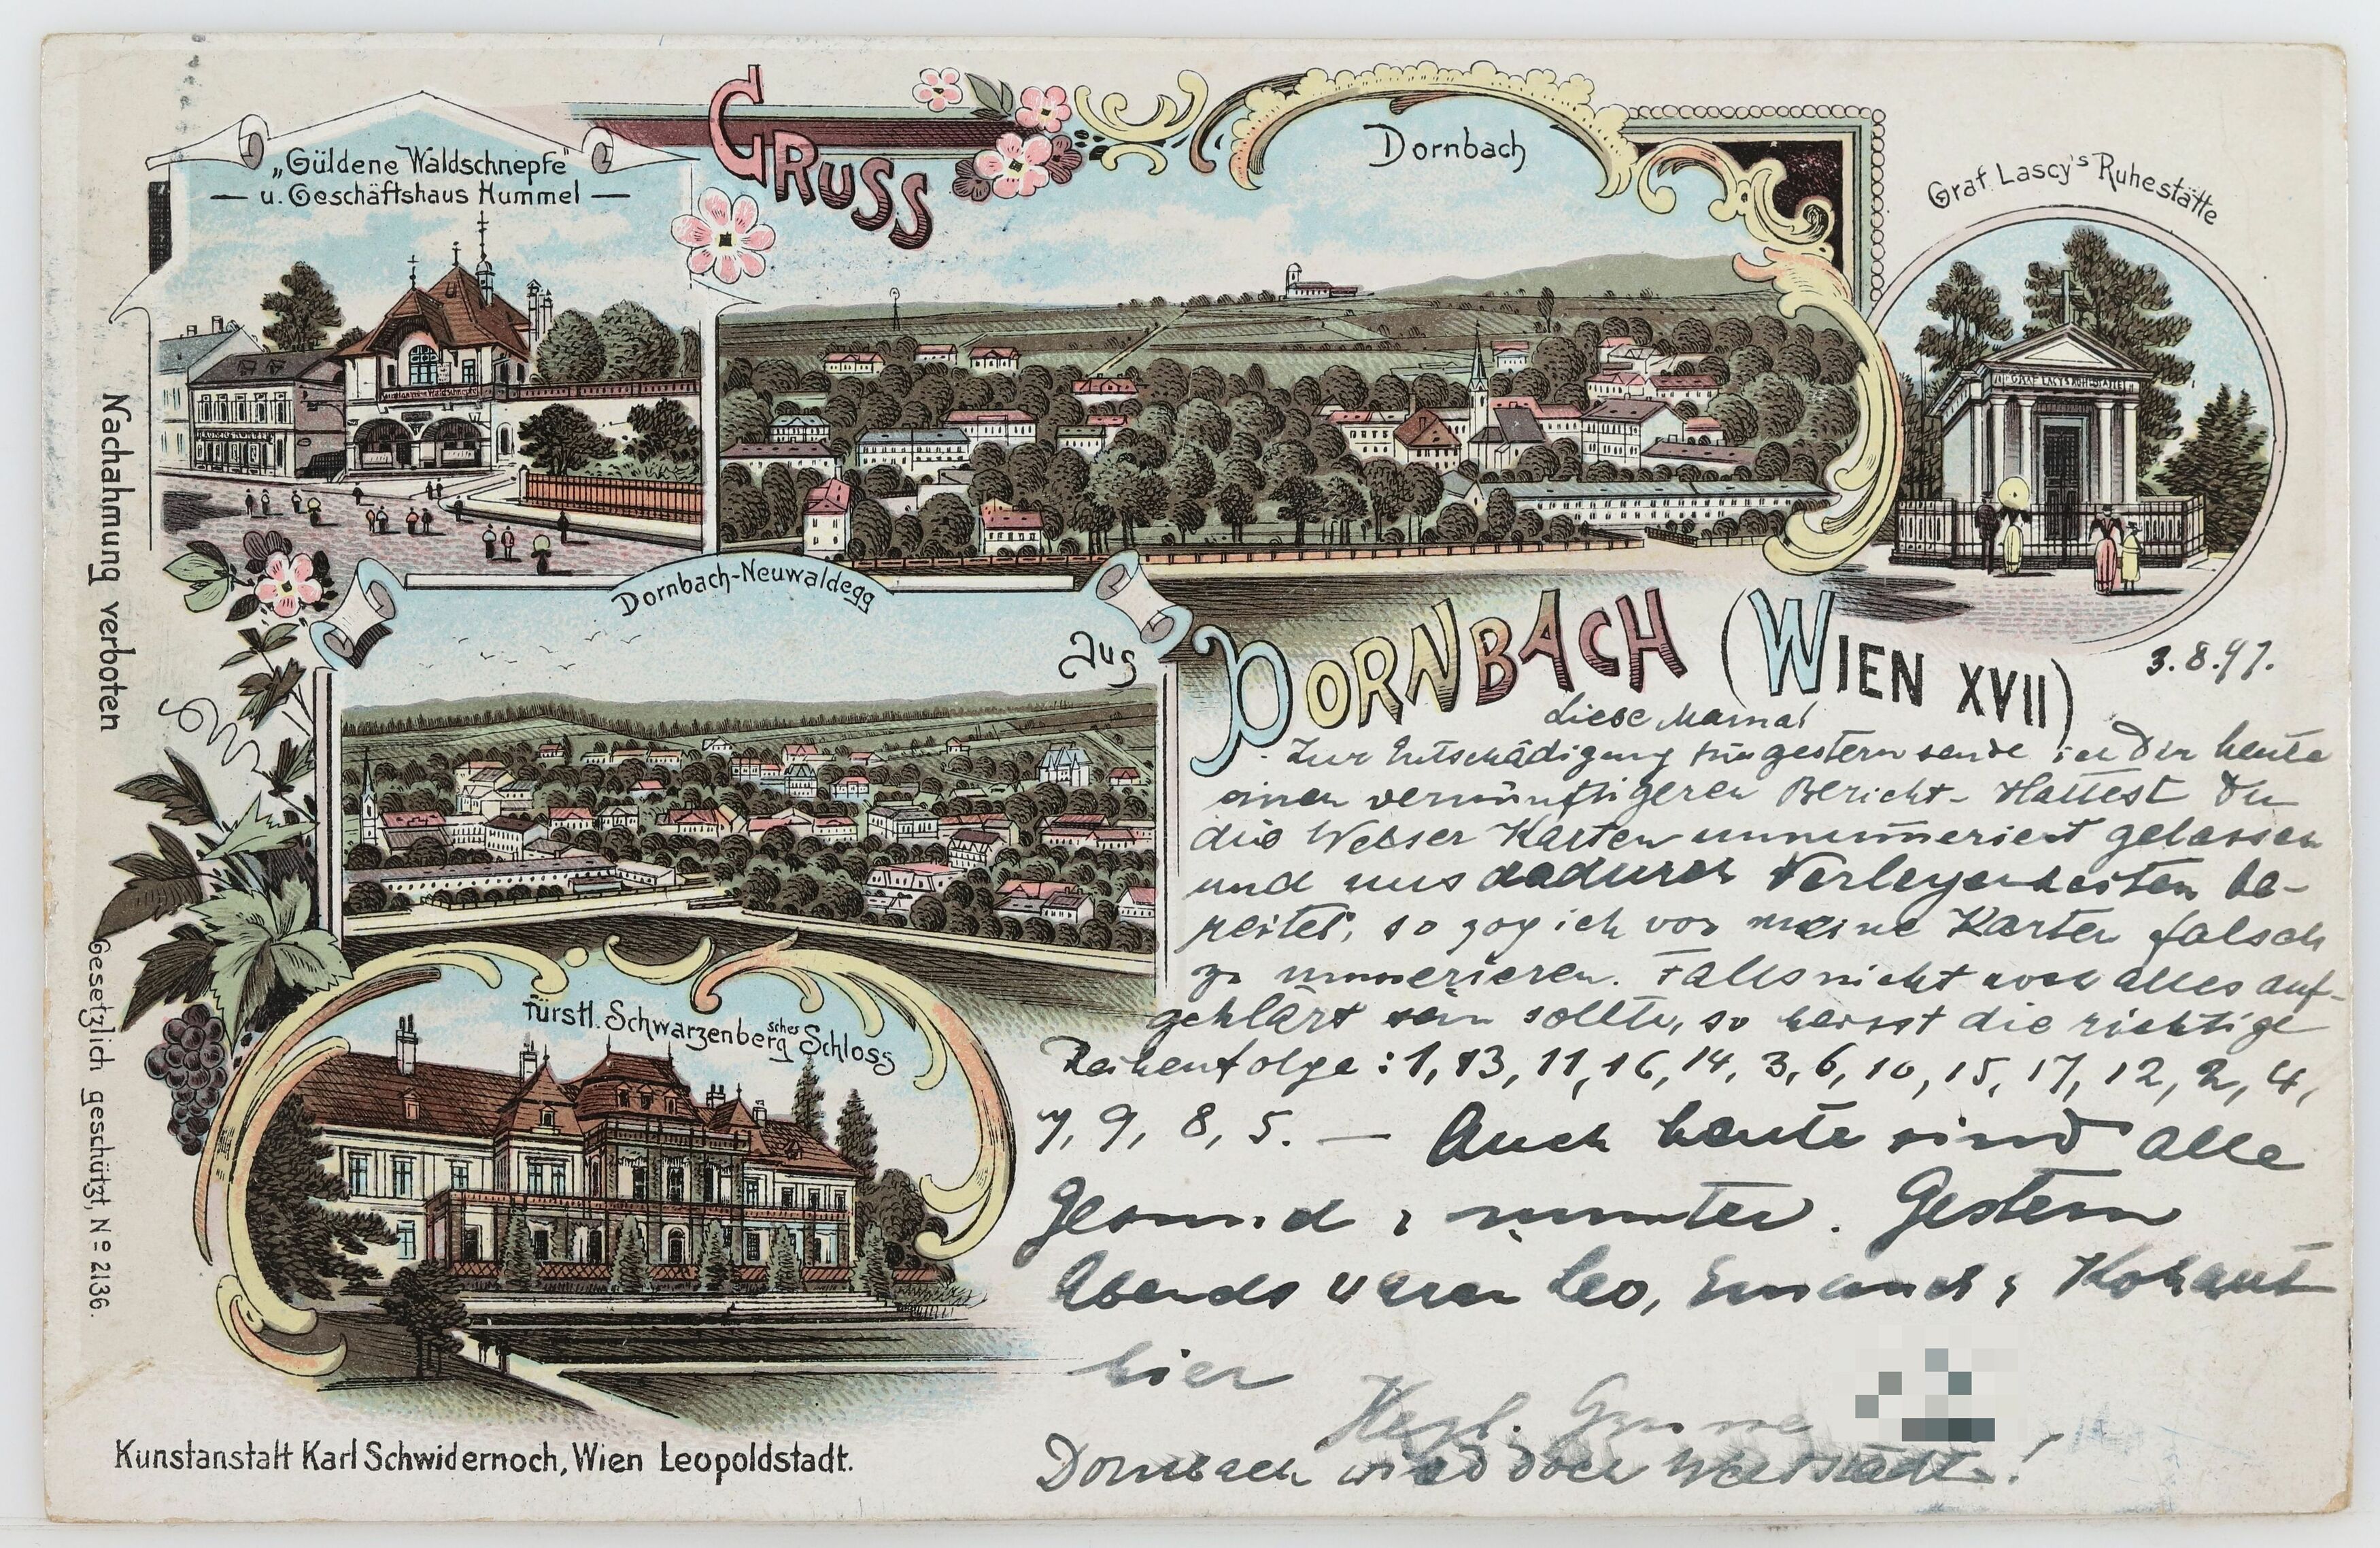 „Güldene Waldschnepfe"
— u. Geschäftshaus Hummel —
GRUSS
Dornbach
Graf Lascy's Ruhestätte
GRAF LACY'S RUHESTÄTTE
Dornbach-Neuwaldegg
Aus
DORNBACH (WIEN XVII)
3.8.97.
Liebe Mama!
Zur Entschädigung für gestern sende ich Dir heute
einen vernünftigeren Bericht. Hattest Du
die Karten unnumeriert gelassen
und uns dadurch Verlegenheiten be-
reitet, so zog ich vor meine Karten falsch
zu numerieren. Falls nicht noch alles auf-
geklärt sein sollte, so heisst die richtige
Reihenfolge: 1, 13, 11, 16, 14, 3, 6, 10, 15, 17, 12, 2, 4,
7, 9, 8, 5. — Auch heute sind alle
gesund & munter. Gestern
Abends waren Leo, &
hier
Herzl. Grüsse
Dornbach wird doch Weltstadt!
Fürstl. Schwarzenberg'sches Schloss
Nachahmung verboten
Gesetzlich geschützt, No 2136.
Kunstanstalt Karl Schwidernoch, Wien Leopoldstadt.